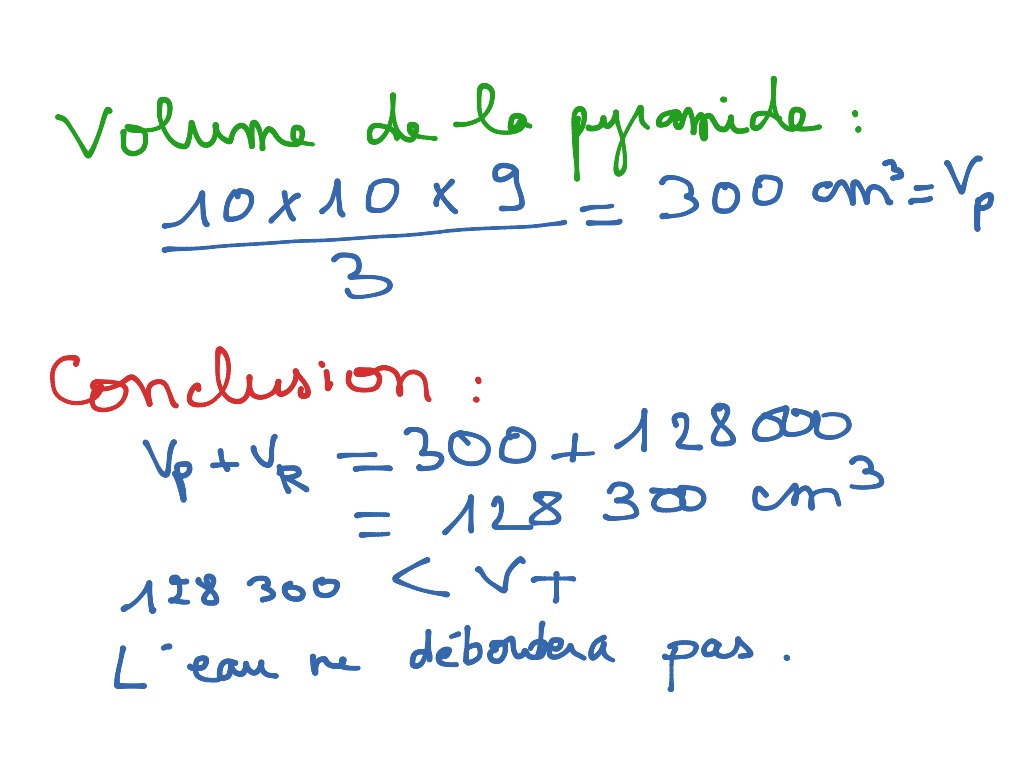 Volume de la pyramide :
10 x 10 x 9 = 300 cm³ = Vp
3
Conclusion :
Vp + VR = 300 + 128 000
= 128 300 cm³
128 300 < V+
L'eau ne débordera pas.